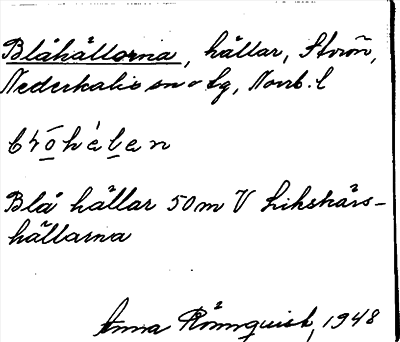 Blåhällorna, hällar, Strörñ,
Nederkalix sn o tg, Norrb. l
blo̲héḻen
Blå hällar 50 m V Likskärs-
hällarna
Anna Rönnquist, 1948